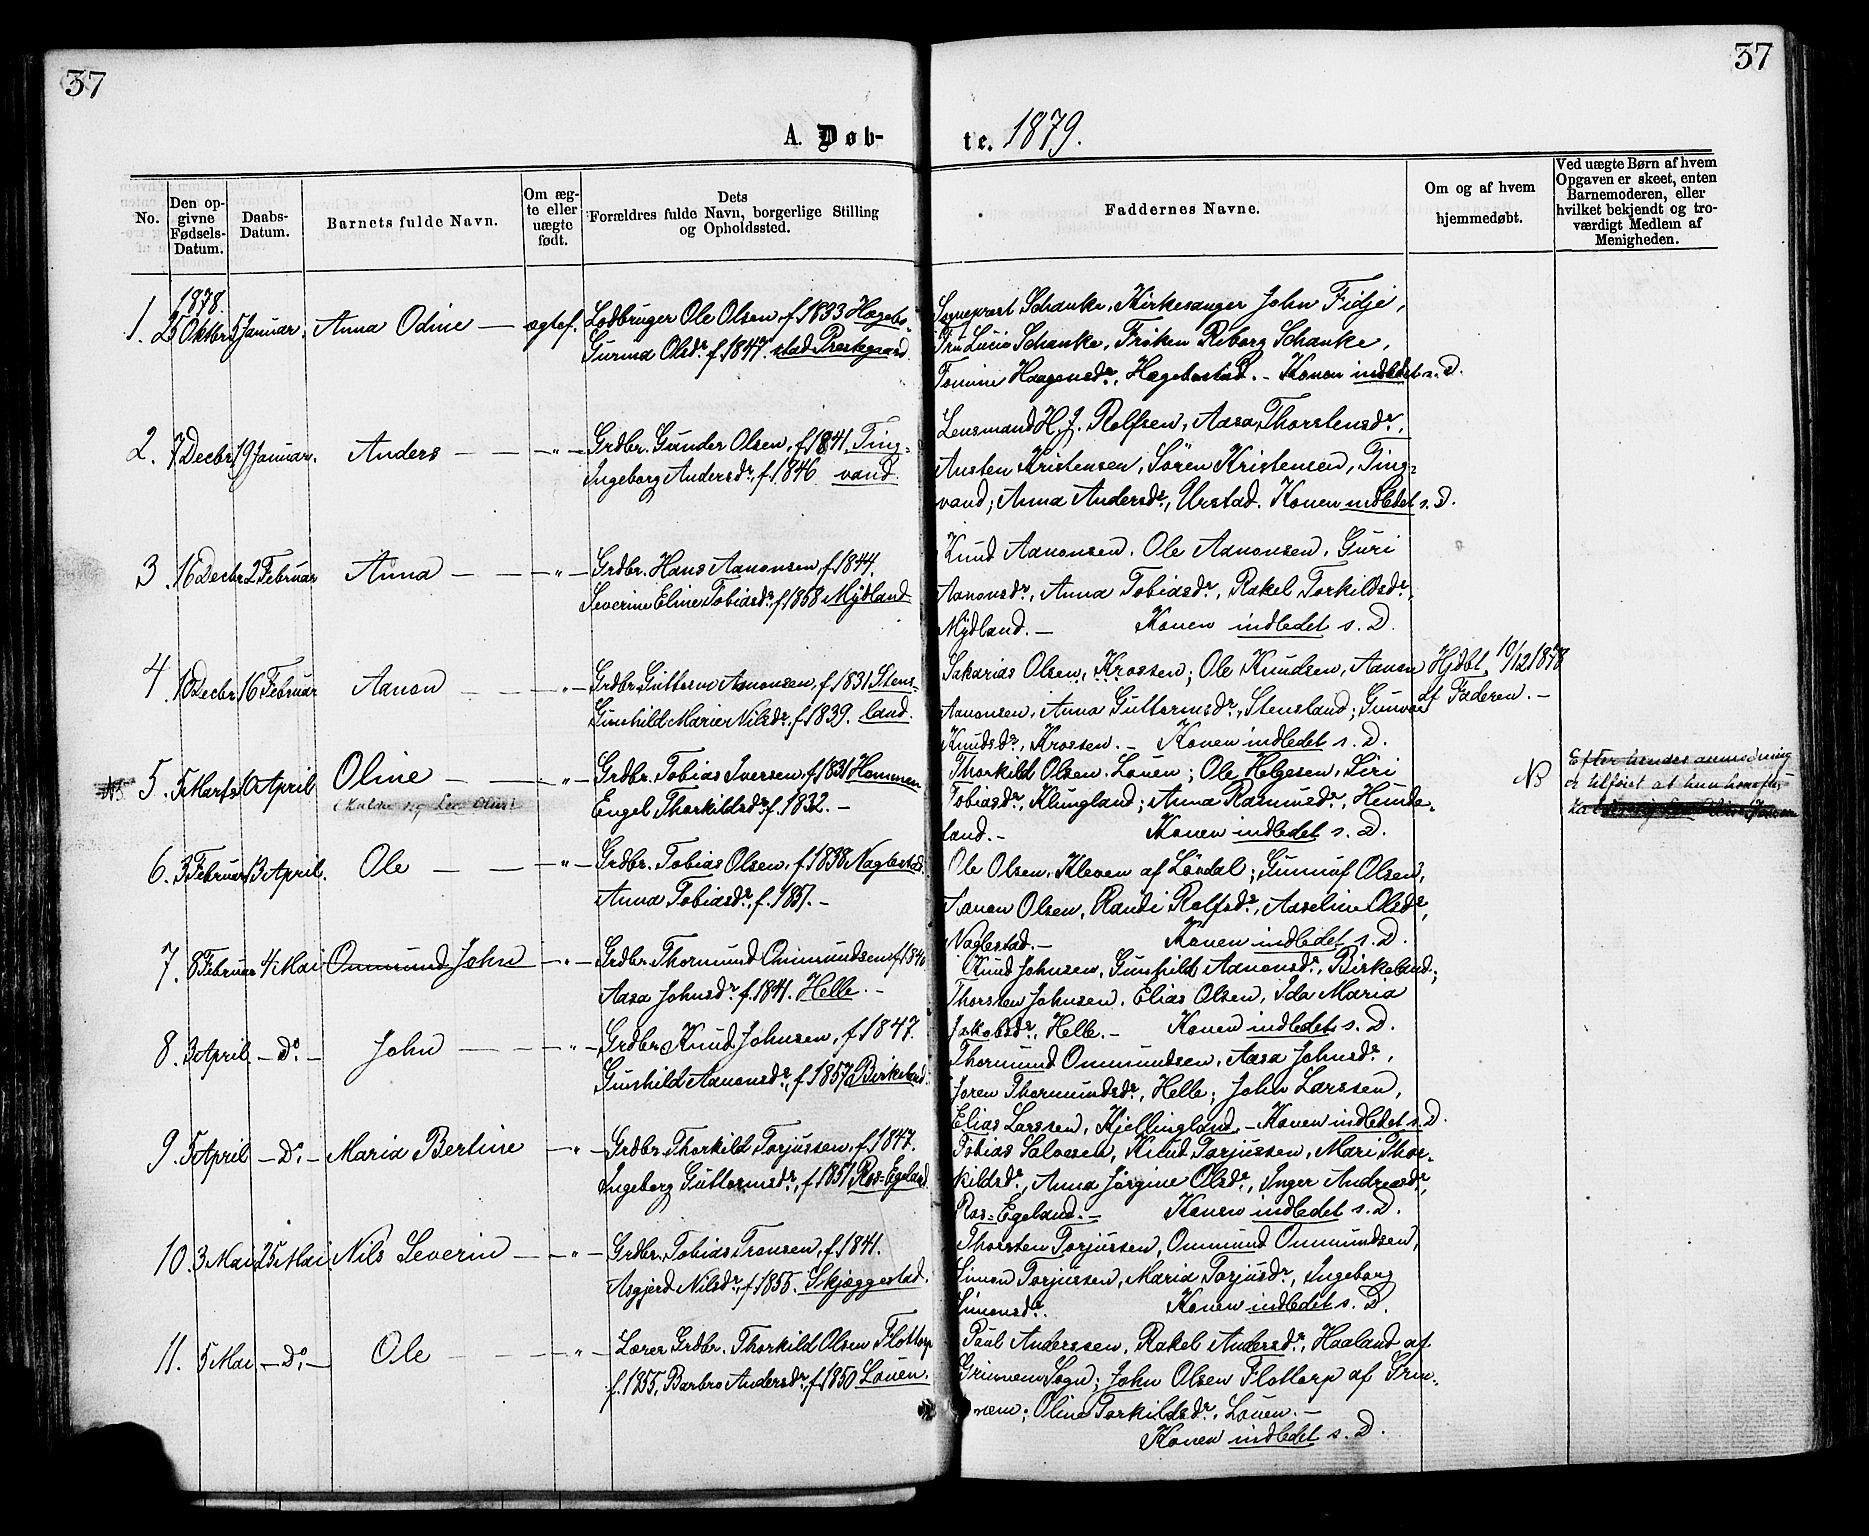 37
37
A. Døb-
te. 1879.
No.
Den opgivne Fødsels-Datum.
Daabs-Datum.
Barnets fulde Navn.
Om ægte eller uægte født.
Dets
Forældres fulde Navn, borgerlige Stilling
og Opholdssted.
Faddernes Navne.
Om og af hvem
hjemmedøbt.
Ved uægte Børn af hvem
Opgaven er skeet, enten
Barnemoderen, eller
hvilket bekjendt og tro-
værdigt Medlem af
Menigheden.
1878.
1. 25 Oktbr 5 Januar. Anna Odine — ægtef. Lodbruger Ole Olsen, f. 1833 Hægebo-
Gurina Olsdr. f. 1847. stad Prestegaard.
Sogneprest Schanke, Kirkesanger John Fidje,
Fru Lucie Schanke, Frøken Schanke,
Tomine Haagensdr., Hægebostad. – Konen indledet s. D.
2. 7 Decbr. 19 Januar. Anders — — „ — Grdbr. Gunder Olsen, f. 1841. Ting-
Ingeborg Andersdr., f. 1846 vand.
Lensmand H. J. Rolfsen, Aasa Thorstensdr.,
Austen Kristensen, Sören Kristensen, Ting-
vand; Anna Andersdr., Urstad. Konen indledet s. D.
3. 16 Decbr 2 Februar Anna — — „ — Grdbr. Hans Aanonsen, f. 1844.
Severine Eline Tobiasdr. f. 1858 Mÿdland
Knud Aanonsen, Ole Aanonsen, Guri
Aanonsdr., Anna Tobiasdr., Rakel Torkildsdr.,
Mÿdland. — Konen indledet s. D.
4. 10 Decbr. 16 Februar Aanon — — „ — Grdbr. Guttorm Aanonsen, f. 1831 Stens-
Gunhild Marie Nilsdr., f. 1839. land.
Sakarias Olsen, Krossen; Ole Knudsen, Aanon
Aanonsen, Anna Guttormsdr., Stensland; Gunvor
Knudsdr., Krossen. – Konen indledet s. D.
Hjdbt. 10/12 1878
af Faderen. –
NB. 5. 5 Marts 10 April Oline — — „ — Grdbr. Tobias Iversen, f. 1831 Hommen
Engel Thorkildsdr. f. 1832. –
Thorkild Olsen, Louen; Ole Helgesen, Siri
Tobiasdr., Klungland; Anna Rasmusdr., Hunde-
land. – Konen indledet s. D.
NB
Efter hendes anmodning
er tilføiet at hun
6. 3 Februar 13 April. Ole — — „ — Grdbr. Tobias Olsen, f. 1838 Naglestad.
Anna Tobiasdr., f. 1851. –
Ole Olsen, Kleven af Lövdal; Gunnuf Olsen,
Aanon Olsen, Randi Rolfsdr., Aaseline Olsdr.,
Naglestad. – Konen indledet s. D.
7. 8 Februar 4 Mai Ommund John — „ — Grdbr. Thormund Ommundsen f. 1840
Aasa Johnsdr. f. 1841. Helle. –
Knud Johnsen, Gunhild Aanonsdr., Birkeland;
Thorsten Johnsen, Elias Olsen, Ida Maria
Jakobsdr., Helle. – Konen indledet s. D.
8. 3 April — Do. — John — — „ — Grdbr. Knud Johnsen, f. 1847.
Gunhild Aanonsdr., f. 1857 Birkeland.
Thormund Ommundsen, Aasa Johnsdr.,
Joren Thormundsdr., Helle; John Larssen,
Elias Larssen, Kjellingland. – Konen indledet s. D.
9. 5 April — Do. — Maria Bertine — „ — Grdbr. Thorkild Torjussen, f. 1847.
Ingeborg Guttormsdr., f. 1851 Ros-Egeland
Tobias Salvesen, Knud Torjussen, Mari Thor-
kildsdr., Anna Jörgine Olsdr., Inger Andreasdr.,
Ros-Egeland. – Konen indledet s. D.
10. 3 Mai 25 Mai Nils Severin — „ — Grdbr. Tobias Tronsen, f. 1841.
Asgjerd Nilsdr., f. 1855. Skjæggestad.
Thorsten Torjussen, Ommund Ommundsen,
Simon Torjussen, Maria Torjusdr., Ingeborg
Simonsdr. Konen indledet s. D.
11. 5 Mai — Do. — Ole — — „ — Lærer Grdbr. Thorkild Olsen Flottorp
f. 1855, Barbro Andersdr. f. 1850 Louen.
Paul Anderssen, Rakel Andersdr., Haaland af
Grinnem Sogn; John Olsen Flottorp af Grin-
nem; Oline Torkildsdr., Louen. –
Konen indledet s. D.